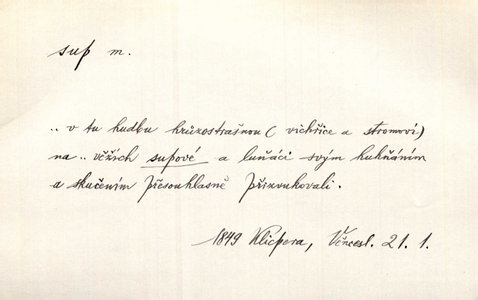 sup m.
.. v tu hudbu hrůzostrašnou ( vichřice a stromoví)
na .. věžích supové a luňáci svým huhňáním
a skučením přesouhlasně přizvukovali.
1849 Klicpera, Věncesl. 21. 1.